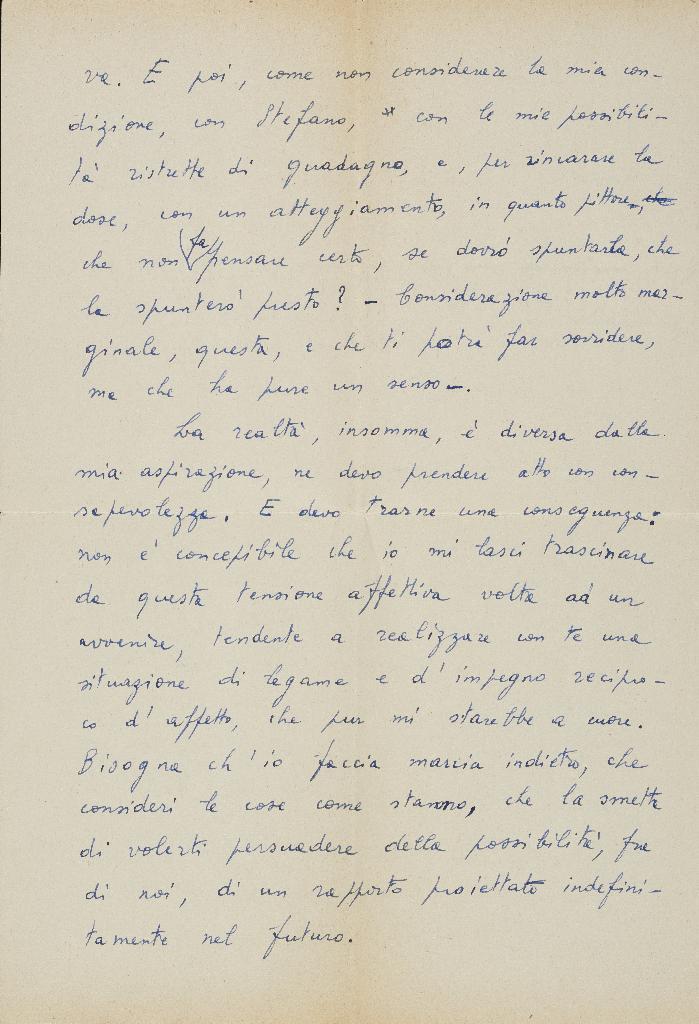 va. E poi, come non considerare la mia con-
dizione, con Stefano, * con le mie possibili-
tà ristrette di guadagno, e, per rincarare la
dose, con un atteggiamento, in quanto pittore, che
che non fa pensare certo, se dovrò spuntarla, che
la spunterò presto? - Considerazione molto mar-
ginale, questa, e che ti potrà far sorridere,
ma che ha pure un senso-.
La realtà, insomma, è diversa dalla
mia aspirazione, ne devo prendere atto con con-
sapevolezza. E devo trarne una conseguenza:
non è concepibile che io mi lasci trascinare
da questa tensione affettiva volta ad un
avvenire, tendente a realizzare con te una
situazione di legame e d'impegno recipro-
co d'affetto, che pur mi starebbe a cuore.
Bisogna ch'io faccia marcia indietro, che
consideri le cose come stanno, che la smetta
di volerti persuadere della possibilità, fra
di noi, di un rapporto proiettato indefini-
tamente nel futuro.